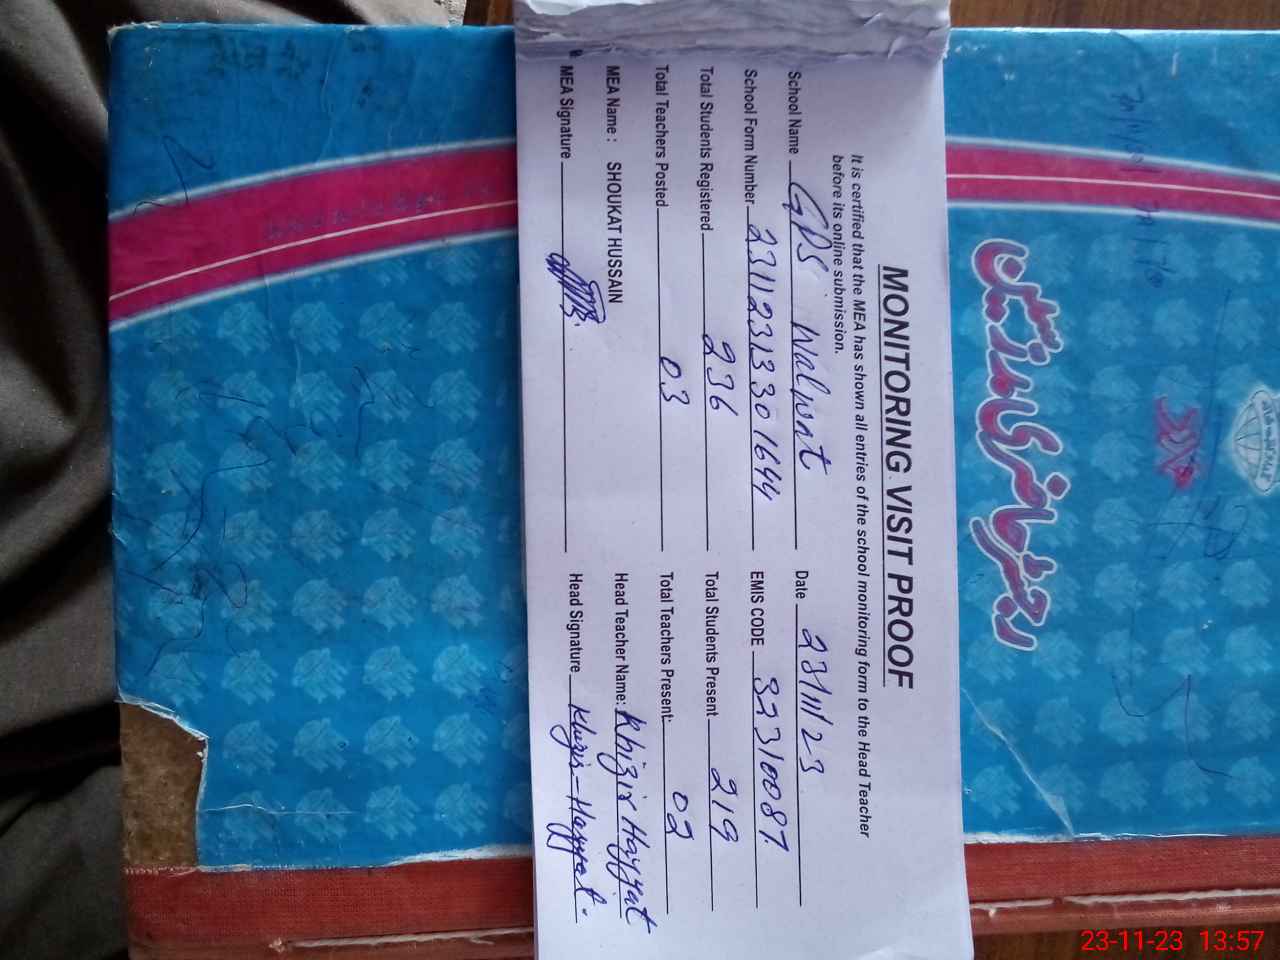 MONITORING VISIT PROOF
It is certified that the MEA has shown all entries of the school monitoring form to the Head Teacher
before its online submission.
School Name GPS Walwat Date 23/11/23
School Form Number 231123133301644 EMIS CODE 33310087
Total Students Registered 236 Total Students Present 219
Total Teachers Posted 03 Total Teachers Present: 02
MEA Name : SHOUKAT HUSSAIN Head Teacher Name: Khizir Hayyat
MEA Signature Head Signature Khizir-Hayyat.
رجسٹر حاضری اساتذہ
23-11-23 13:57